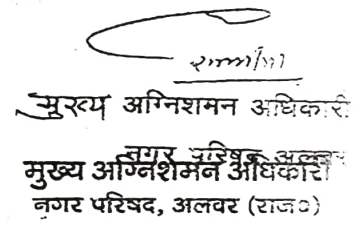 मुख्य अग्निशमन अधिकारी
नगर परिषद अलवर
मुख्य अग्निशमन अधिकारी
नगर परिषद, अलवर (राज०)